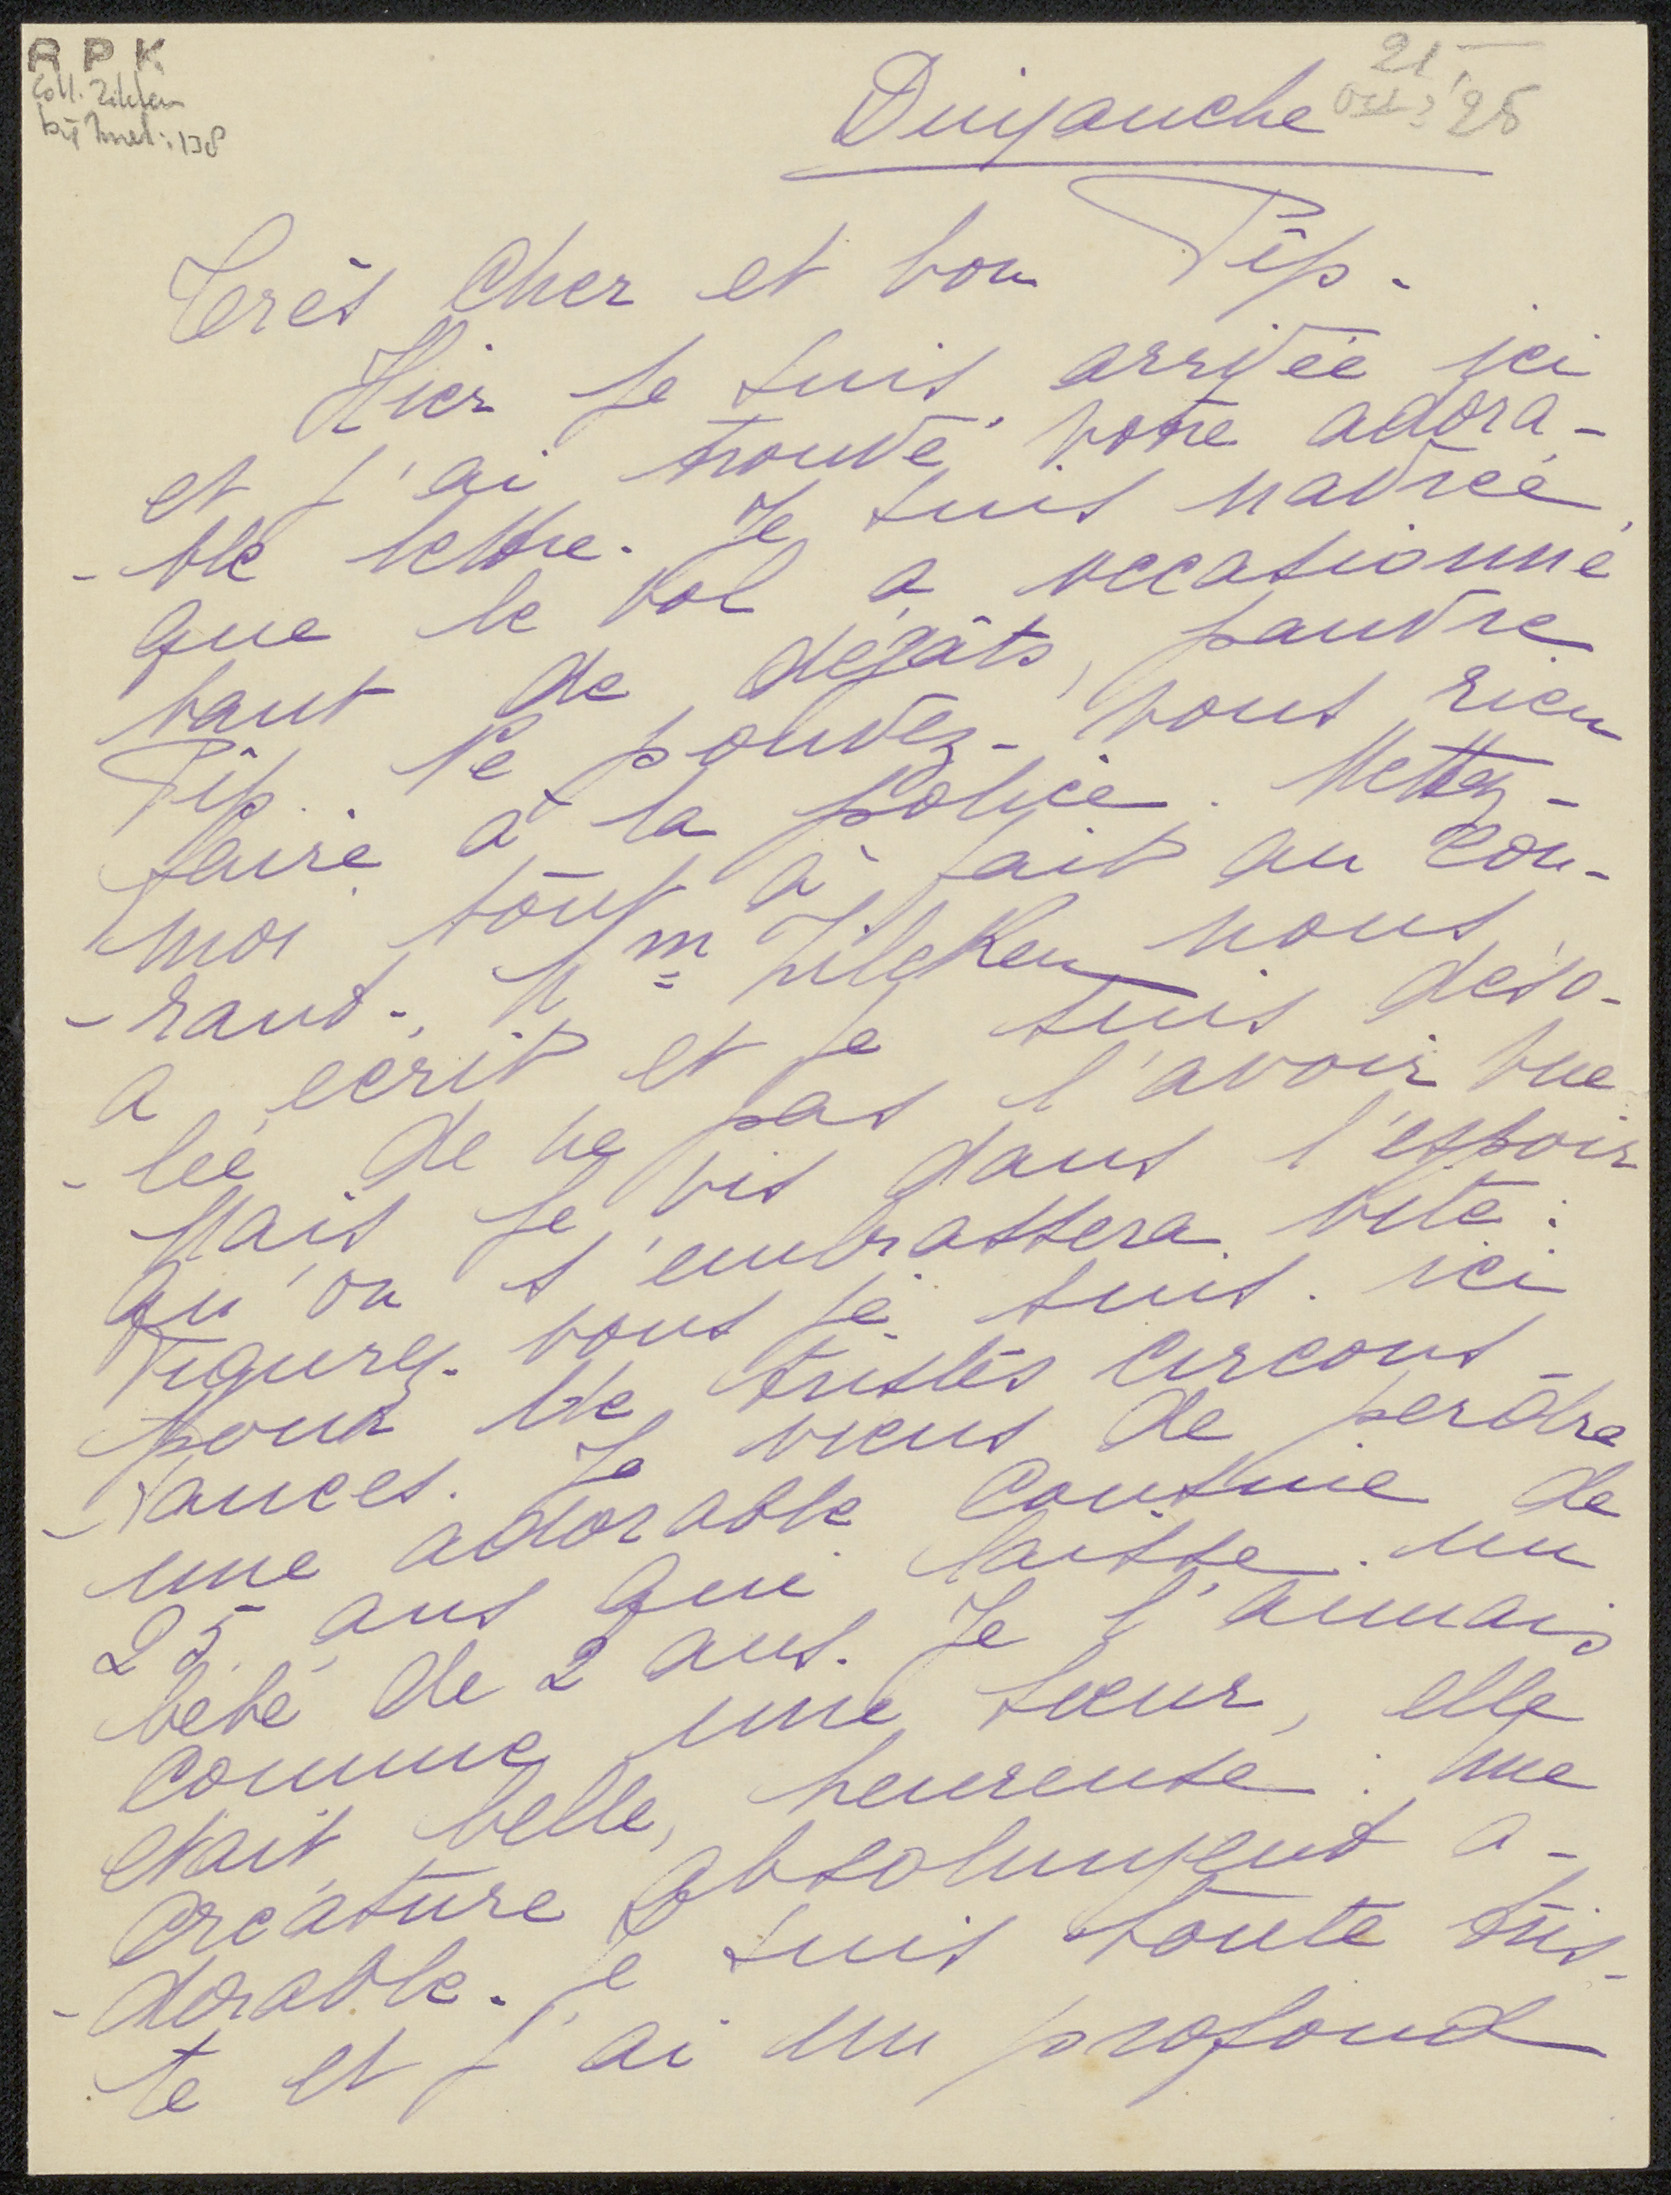 R P K
Coll. Zilcken
21
'25
Dimanche
Très Cher et bon Pip.
Hier je suis arrivée ici
et j'ai trouvé votre adora-
-ble lettre. Je suis navrée
que le vol a occasionné
tant de dégâts, pauvre
Pip. Ne pouvez-vous rien
faire à la police. Mettez-
moi tout à fait au cou-
-rant. Mm Zilcken nous
a écrit et je suis déso-
-lée de ne pas l'avoir vue
Mais je vis dans l'espoir
qu'on s'embrassera vite.
Figurez-vous je suis ici
pour de tristes circons-
-tances. Je viens de perdre
une adorable cousine de
25 ans qui laisse un
bébé de 2 ans. Je l'aimais
comme une sœur, elle
etait belle, heureuse: une
créature absolument a-
-dorable. Je suis toute tris-
te et j'ai un profond